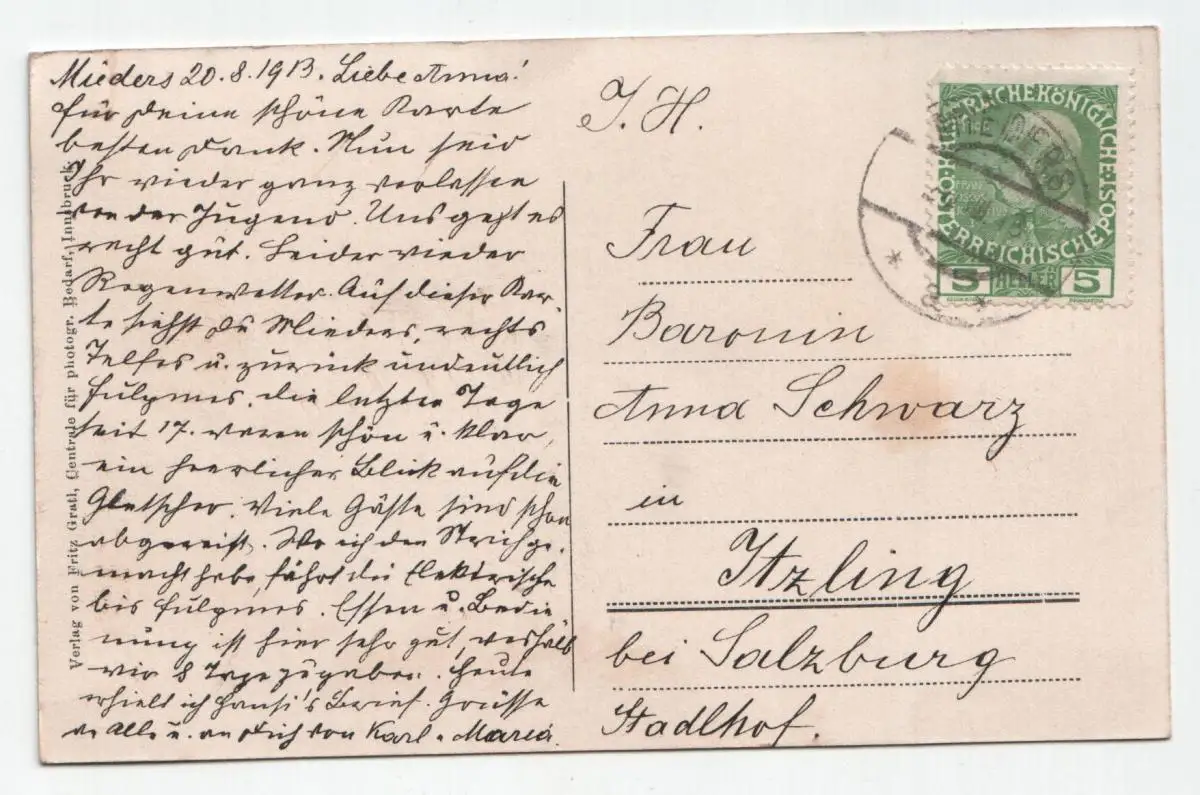 Mieders 20.8.1913. Liebe Anna!
für Deine schöne Karte
besten Dank. Nun seid
Ihr wieder ganz verlassen
von der Jugend. Uns geht es
recht gut. Leider wieder
Regenwetter. Auf dieser Kar-
te siehst Du Mieders, rechts
Telfes u. zurück undeutlich
Fulpmes. Die letzten Tage
seit 17. waren schön u. klar,
ein herrlicher Blick auf die
Gletscher. Viele Gäste sind schon
abgereist. Wo ich den Strich ge-
macht habe, fährt die Elektrische
bis Fulpmes. Essen u. Bedie
nung ist hier sehr gut, weshalb
wir 8 Tage zugaben. Heute
erhielt ich Hansi's Brief. Grüsse
an Alle u. an Dich von Karl u Maria
Verlag von Fritz Gratl, Centrale für photogr. Bedarf, Innsbruck.
I. H.
Frau
Baronin
Anna Schwarz
in
Itzling
bei Salzburg
Stadlhof.
KAISERLICHE KÖNIGLICHE ÖSTERREICHISCHE POST
5 HELLER 5
MIEDERS